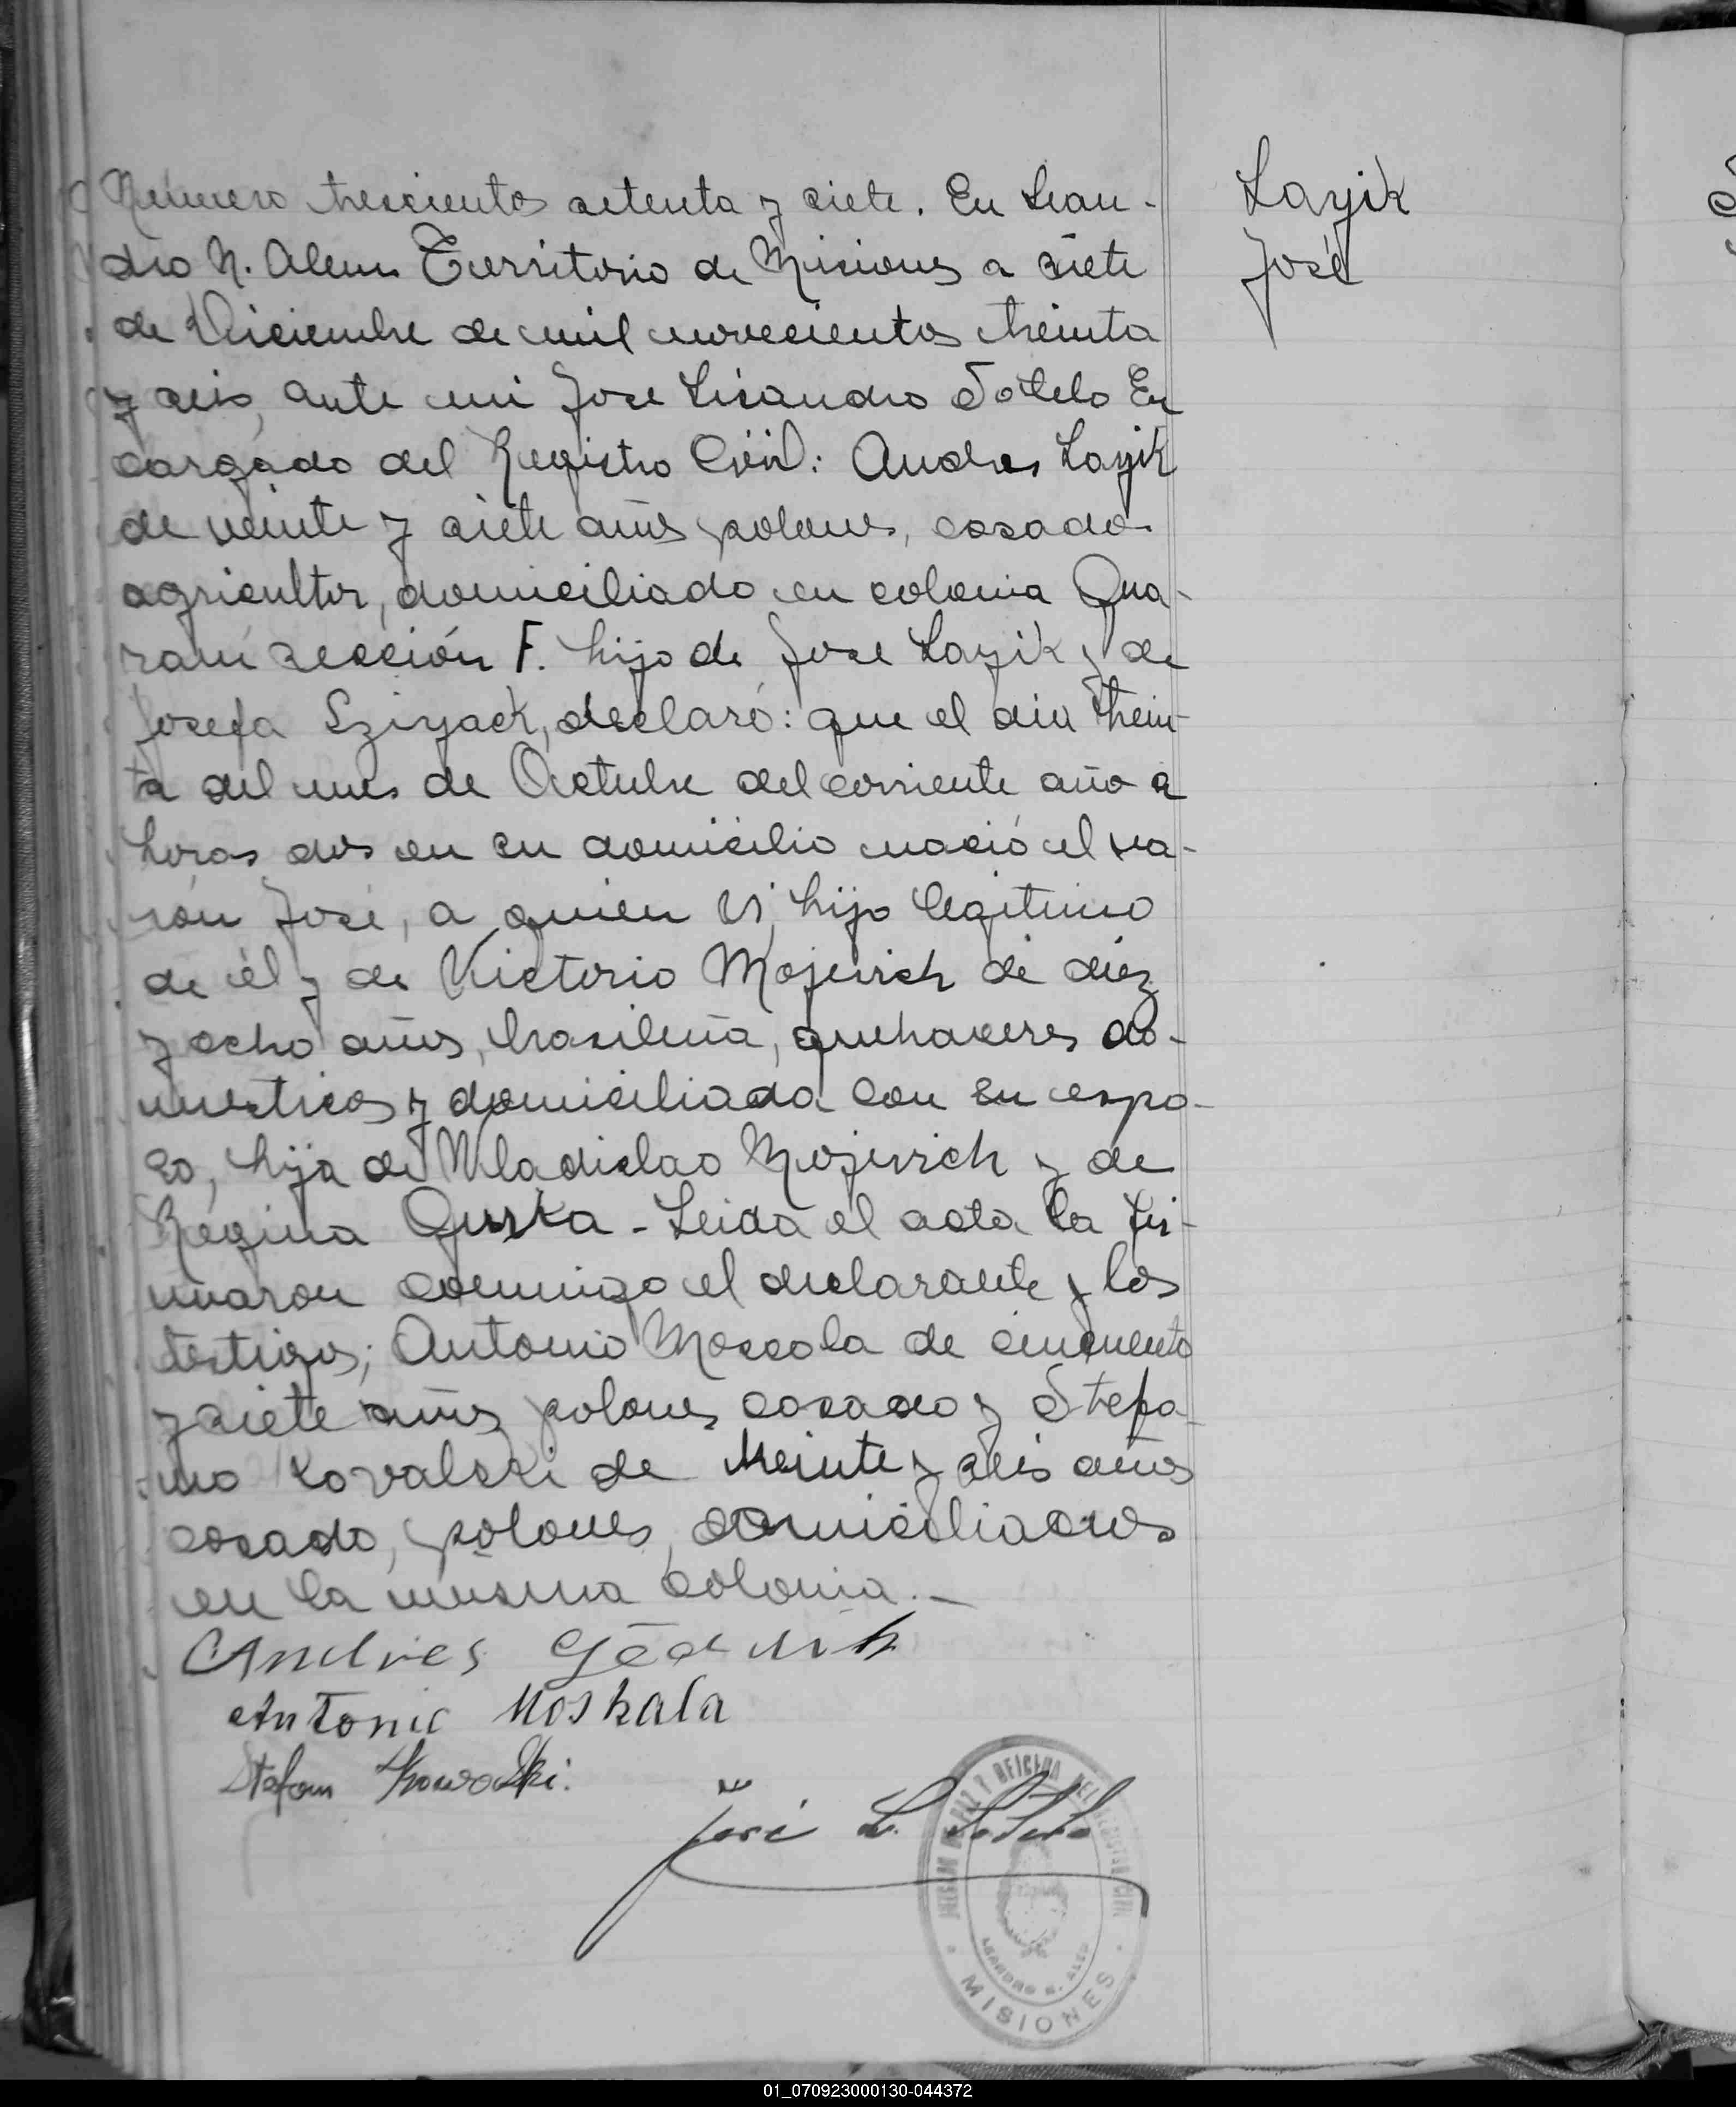 Número trescientos setenta y siete. En Lean-
dro N. Alem Territorio de Misiones a siete
de Diciembre de mil novecientos treinta
y seis, ante mi Jose Lisandro Sotelo En
cargado del Registro Civil: Andres Layik
de veinte y siete años polones, casado
agricultor, domiciliado en colonia Gua-
raní sección F. hijo de Jose Layik y de
Josefa Sziyack, declaró: que el dia trein-
ta del mes de Octubre del corriente año a
horas dos en su domicilio nació el va-
rón José, a quien vi, hijo legitimo
de él y de Victoria Mojevich de diez
y ocho años, brasileña, quehaceres do-
mesticos y domiciliada con su espo-
so, hija de Wladislao Mojevich y de
Regina Gurka - Leida el acta la fir-
maron conmigo el declarante y los
testigos; Antonio Moscola de cincuenta
y siete años polones casado y Stefa-
no Kovalski de treinta y seis años
casado, polones, domiciliados
en la misma colonia.-
Andres
Antonio Moskala
Stefan Kowalski.
José L. Sotelo
JUZGADO DE PAZ Y OFICINA DEL REGISTRO CIVIL
LEANDRO N. ALEM
MISIONES
Layik
José
01_070923000130-044372